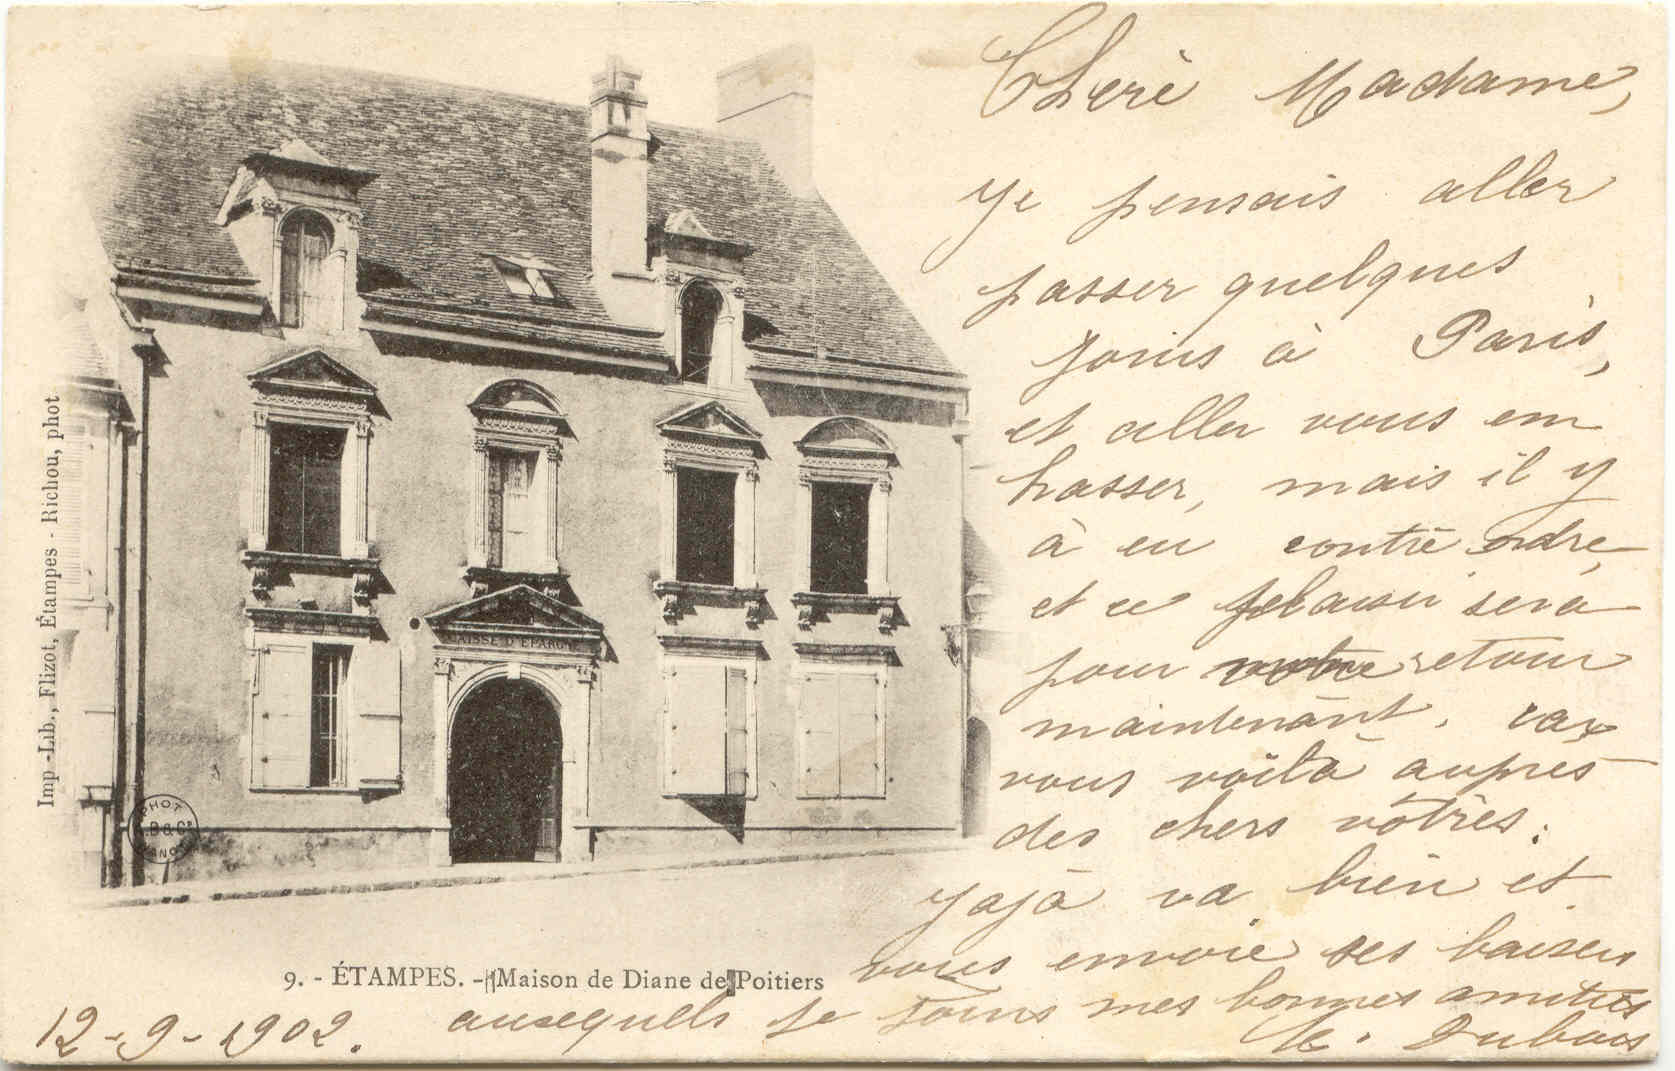 Cherè Madame,
Je pensais aller
passer quelques
jours à Paris,
et aller vous em
brasser, mais il y
à eu contre ordre,
et ce plaisir sera
pour votre retour
maintenant, car
vous voilà auprès
des chers vôtres.
Jajà va bien et
vous envoie ses baisers
auxequels je joins mes bonnes amitiés
M. Dubois
12-9-1902.
9. - ÉTAMPES. - Maison de Diane de Poitiers
Imp-Lib., Flizot, Étampes - Richou, phot
CAISSE D'EPARGNE
PHOT
B & Cie